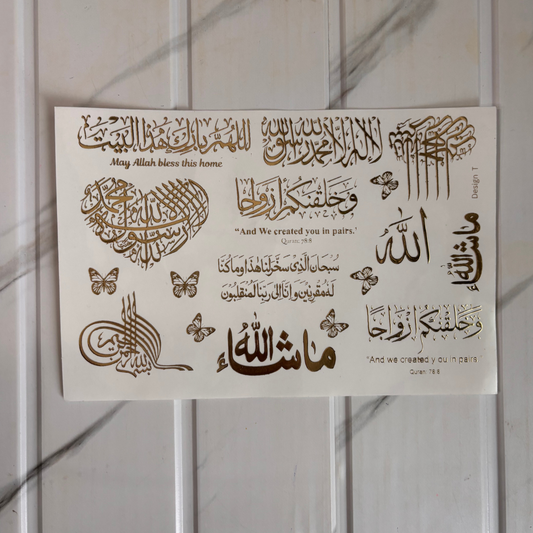 اللهم بارك هذا البيت
May Allah bless this home
لا إله إلا الله محمد رسول الله
Design T
وَخَلَقْنَاكُمْ أَزْوَاجًا
"And We created you in pairs.'
Quran 78:8
الله
ما شاء الله
سُبْحَانَ الَّذِي سَخَّرَ لَنَا هَذَا وَمَا كُنَّا
لَهُ مُقْرِنِينَ وَإِنَّا إِلَى رَبِّنَا لَمُنقَلِبُونَ
بسم الله الرحمن الرحيم
ما شاء الله
وَخَلَقْنَاكُمْ أَزْوَاجًا
"And we created you in pairs"
Quran: 78:8